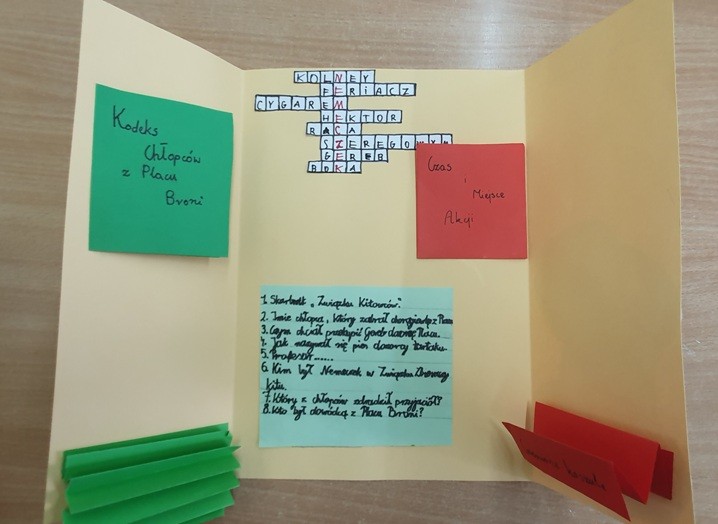 KOLNEY
FERiACZ
CYGAREM
HEKTOR
RACA
SZEREGOWYM
GEREB
BOKA
Kodeks
Chłopców
z Placu
Broni
Czas
i
Miejsce
Akcji
1. Skarbnik „Związku Kitowców".
2. Imie chłopca, który zabrał chorągiewkę z Placu
3. Czym chciał przekupić Gereb dozorcę Placu.
4. Jak nazywał się pies dozorcy tartaku.
5. Profesor......
6. Kim był Nemeczek w Związku Zbieraczy
Kitu.
7. Który z chłopców zdradził przyjaciół?
8. Kto był dowódcą z Placu Broni?